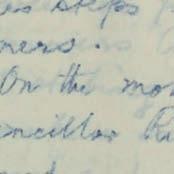 es steps
ners.
On the mo
ncillor Ri